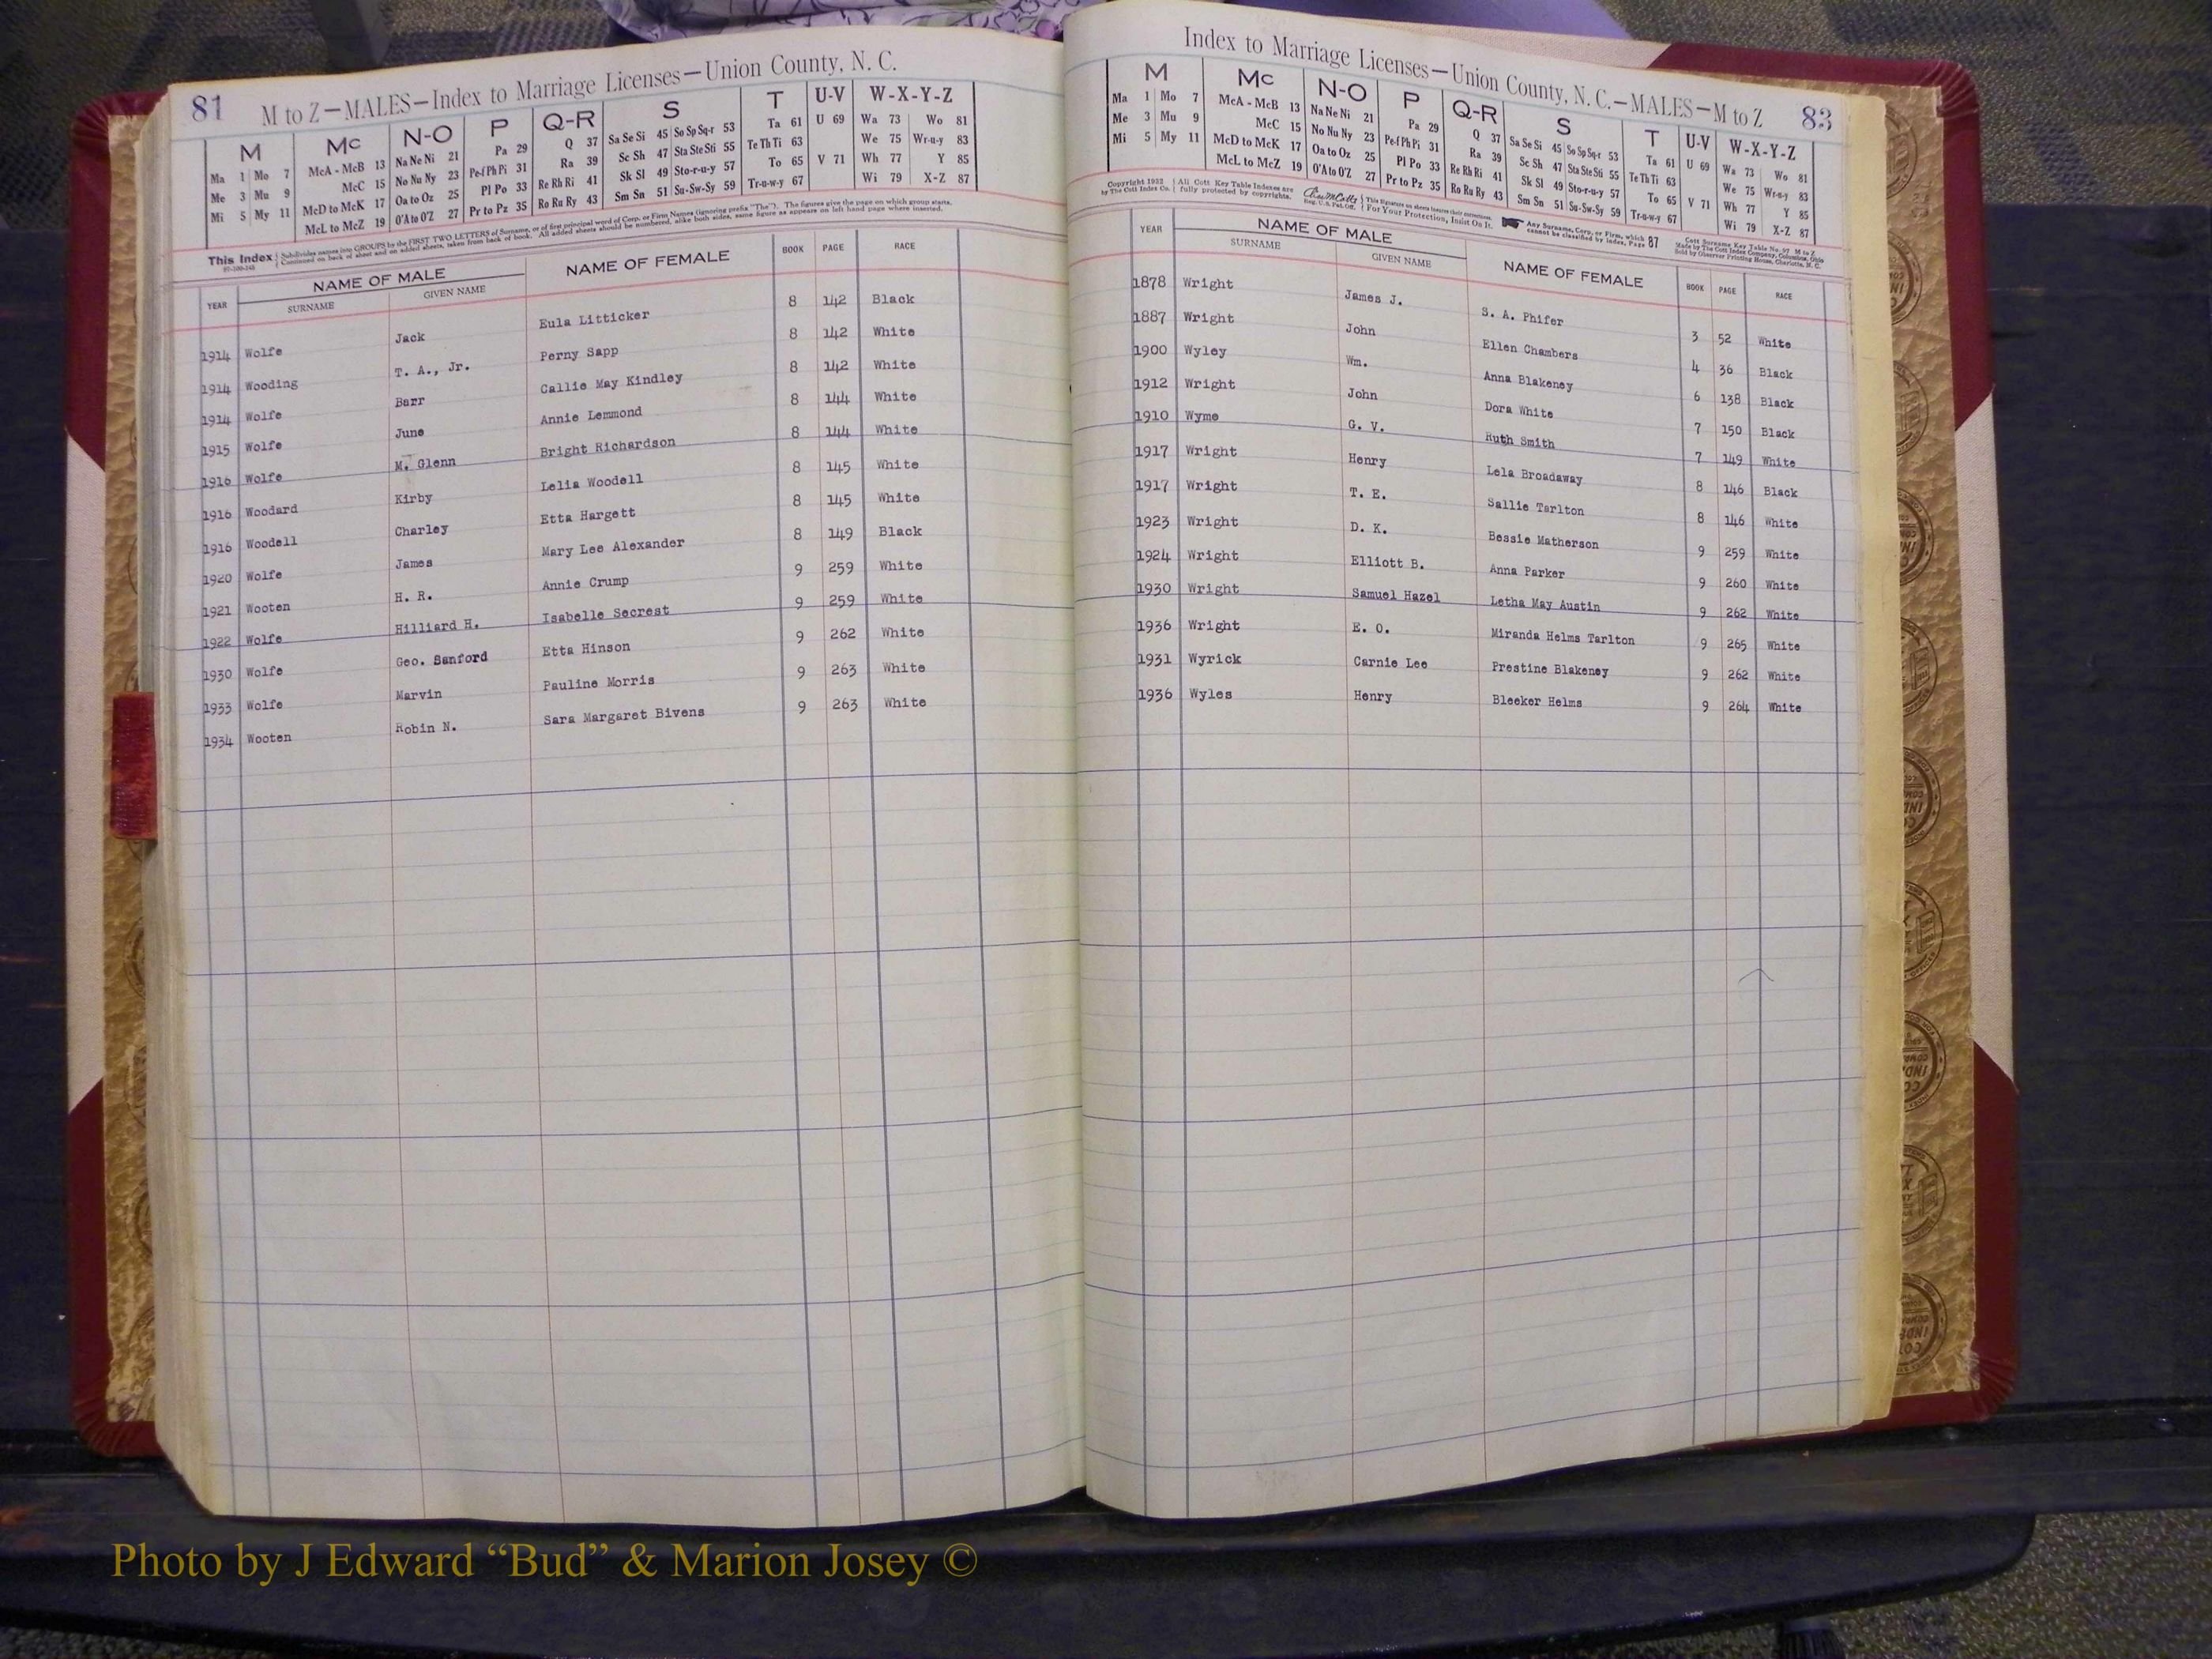 81 M to Z—MALES—Index to Marriage Licenses—Union County, N. C.
M Mc N-O P Q-R S T U-V W-X-Y-Z
Ma 1 Mo 7 McA - McB 13 Na Ne Ni 21 Pa 29 Q 37 Sa Se Si 45 So Sp Sq-r 53 Ta 61 U 69 Wa 73 Wo 81
Me 3 Mu 9 McC 15 No Nu Ny 23 Pe-f Ph Pi 31 Ra 39 Sc Sh 47 Sta Ste Sti 55 Te Th Ti 63 We 75 Wr-u-y 83
Mi 5 My 11 McD to McK 17 Oa to Oz 25 Pl Po 33 Re Rh Ri 41 Sk Sl 49 Sto-r-u-y 57 To 65 V 71 Wh 77 Y 85
McL to McZ 19 O'A to O'Z 27 Pr to Pz 35 Ro Ru Ry 43 Sm Sn 51 Su-Sw-Sy 59 Tr-u-w-y 67 Wi 79 X-Z 87
This Index Subdivides names into GROUPS by the FIRST TWO LETTERS of Surname, or of first principal word of Corp. or Firm Names (ignoring prefix "The"). The figures give the page on which group starts.
Continued on back of sheet and on added sheets, taken from back of book. All added sheets should be numbered, alike both sides, same figure as appears on left hand page where inserted.
YEAR NAME OF MALE SURNAME GIVEN NAME NAME OF FEMALE BOOK PAGE RACE
1914 Wolfe Jack Eula Litticker 8 142 Black
1914 Wooding T. A., Jr. Perny Sapp 8 142 White
1914 Wolfe Barr Callie May Kindley 8 142 White
1915 Wolfe June Annie Lemmond 8 144 White
1916 Wolfe M. Glenn Bright Richardson 8 144 White
1916 Woodard Kirby Lelia Woodell 8 145 White
1916 Woodell Charley Etta Hargett 8 145 White
1920 Wolfe James Mary Lee Alexander 8 149 Black
1921 Wooten H. R. Annie Crump 9 259 White
1922 Wolfe Hilliard H. Isabelle Secrest 9 259 White
1930 Wolfe Geo. Sanford Etta Hinson 9 262 White
1933 Wolfe Marvin Pauline Morris 9 263 White
1934 Wooten Robin N. Sara Margaret Bivens 9 263 White
Index to Marriage Licenses—Union County, N. C.—MALES—M to Z 83
M Mc N-O P Q-R S T U-V W-X-Y-Z
Ma 1 Mo 7 McA - McB 13 Na Ne Ni 21 Pa 29 Q 37 Sa Se Si 45 So Sp Sq-r 53 Ta 61 U 69 Wa 73 Wo 81
Me 3 Mu 9 McC 15 No Nu Ny 23 Pe-f Ph Pi 31 Ra 39 Sc Sh 47 Sta Ste Sti 55 Te Th Ti 63 We 75 Wr-u-y 83
Mi 5 My 11 McD to McK 17 Oa to Oz 25 Pl Po 33 Re Rh Ri 41 Sk Sl 49 Sto-r-u-y 57 To 65 V 71 Wh 77 Y 85
McL to McZ 19 O'A to O'Z 27 Pr to Pz 35 Ro Ru Ry 43 Sm Sn 51 Su-Sw-Sy 59 Tr-u-w-y 67 Wi 79 X-Z 87
Copyright 1932 by The Cott Index Co. All Cott Key Table Indexes are fully protected by copyrights. For Your Protection, Insist On It. Any Surname, Corp. or Firm, which cannot be classified by index, Page 87
YEAR NAME OF MALE SURNAME GIVEN NAME NAME OF FEMALE BOOK PAGE RACE
1878 Wright James J. S. A. Phifer 3 52 White
1887 Wright John Ellen Chambers 4 36 Black
1900 Wyley Wm. Anna Blakeney 6 138 Black
1912 Wright John Dora White 7 150 Black
1910 Wyme G. V. Ruth Smith 7 149 White
1917 Wright Henry Lela Broadaway 8 146 Black
1917 Wright T. E. Sallie Tarlton 8 146 White
1923 Wright D. K. Bessie Matherson 9 259 White
1924 Wright Elliott B. Anna Parker 9 260 White
1930 Wright Samuel Hazel Letha May Austin 9 262 White
1936 Wright E. O. Miranda Helms Tarlton 9 265 White
1931 Wyrick Carnie Lee Prestine Blakeney 9 262 White
1936 Wyles Henry Bleeker Helms 9 264 White
Photo by J Edward “Bud” & Marion Josey ©